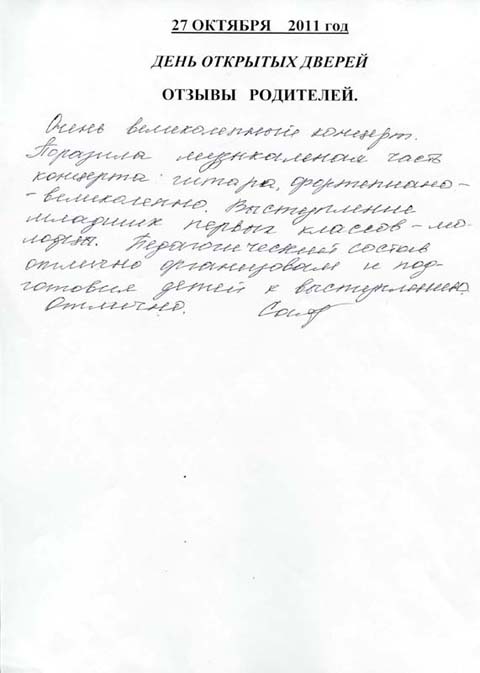 27 ОКТЯБРЯ 2011 год
ДЕНЬ ОТКРЫТЫХ ДВЕРЕЙ
ОТЗЫВЫ РОДИТЕЛЕЙ.
Очень великолепный концерт.
Поразила музыкальная часть
концерта: гитара, фортепиано-
-великолепно. Выступление
младших первых классов – мо-
лодцы. Педагогический состав
отлично организовал и под-
готовил детей к выступлению.
Отлично.